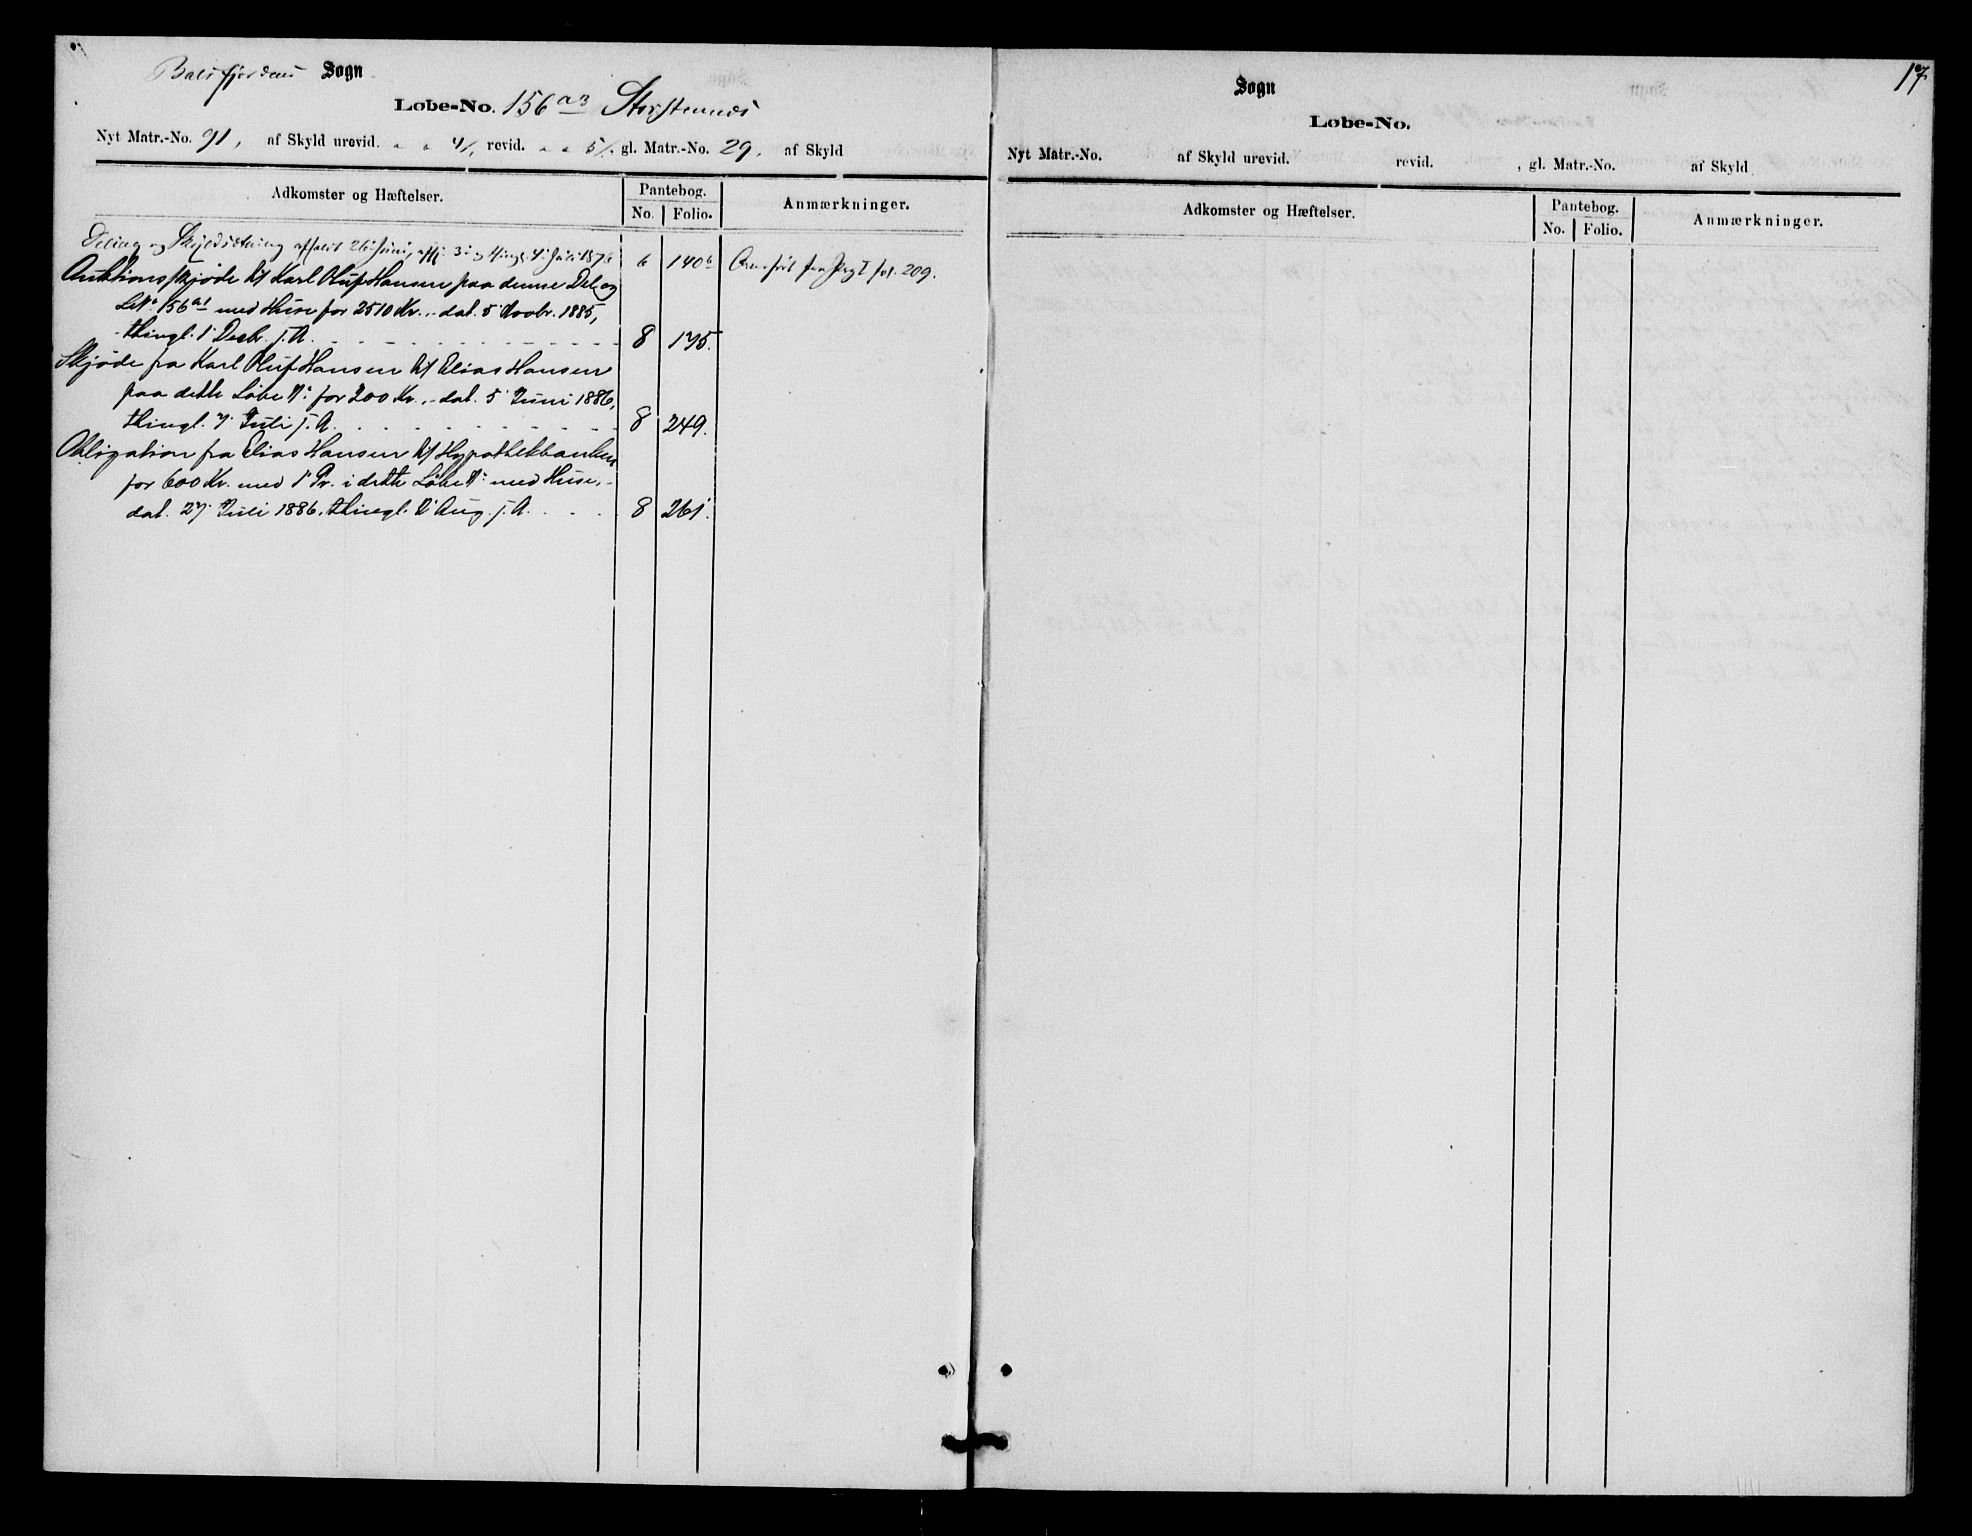 Balsfjordens Sogn
Løbe-No. 156 a3 Storstennes
Nyt Matr.-No. 91, af Skyld urevid. " " 4/, revid. " " 5/, gl. Matr.-No. 29. af Skyld
Adkomster og Hæftelser. Pantebog. Anmærkninger.
No. Folio.
Deling og Skyldsætning afholdt 26 Juni, 4 Juli 1876 6 140 b Overført fra Reg. I fol. 209.
Auktionsskjøde til Karl Oluf Hansen paa denne Del og
L.N. 156 a1 med Huse for 2510 Kr., - dat. 5 Novbr. 1885,
thingl. 1 Decbr. s. A. 8 195.
Skjøde fra Karl Oluf Hansen til Elias Hansen
paa dette Løbe N: for 200 Kr., - dat. 5 Juni 1886,
thingl. 7 Juli s. A. 8 249.
Obligation fra Elias Hansen til Hypothekbanken
for 600 Kr. med 1 Pr. i dette Løbe N: med Huse, -
dat. 27 Juli 1886, thingl. Aug. s. A. 8 261.
17
Sogn
Løbe-No.
Nyt Matr.-No. af Skyld urevid. revid. , gl. Matr.-No. af Skyld
Adkomster og Hæftelser. Pantebog. Anmærkninger.
No. Folio.